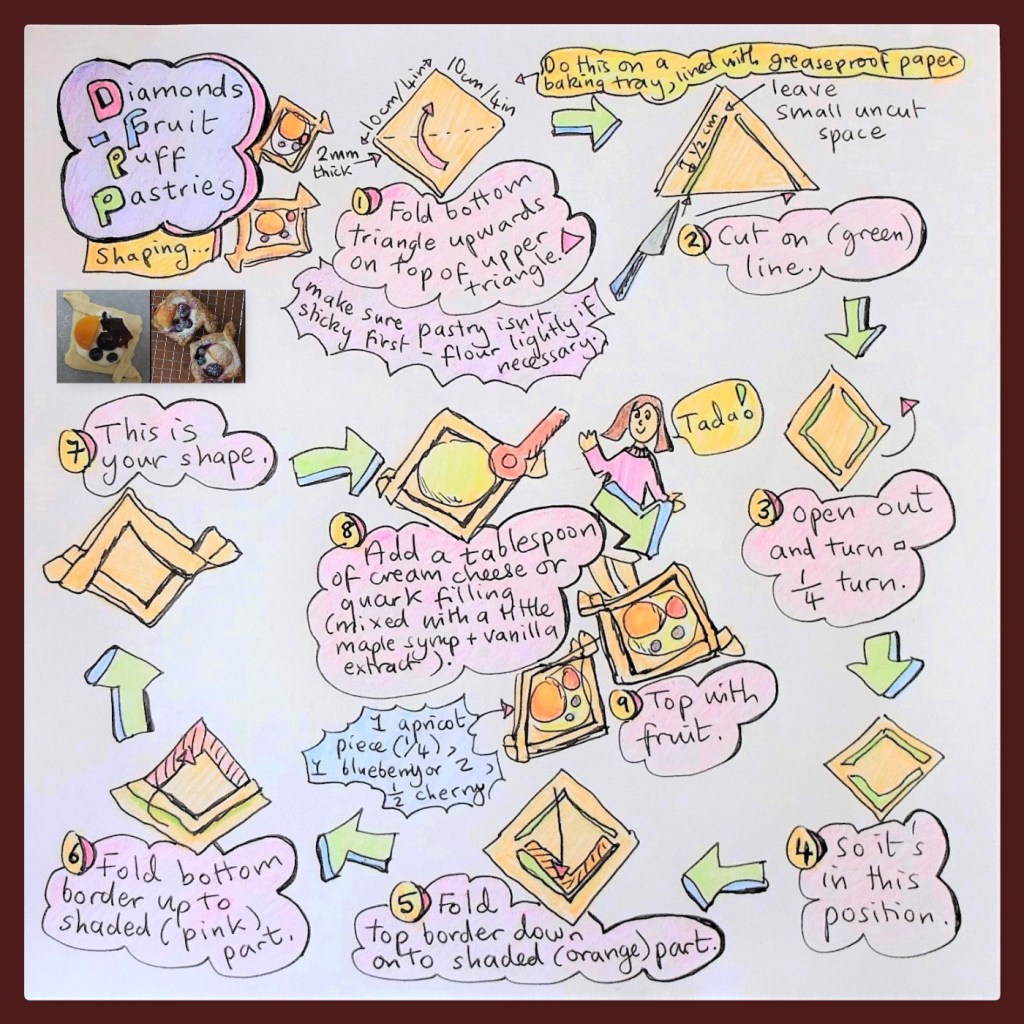 Diamonds
- fruit
Puff
Pastries
Shaping...
10cm/4in
10cm/4in
2mm
thick
Do this on a
baking tray, lined with greaseproof paper
① Fold bottom
triangle upwards
on top of upper
triangle.
make sure pastry isn't
sticky first - flour lightly if
necessary.
leave
small uncut
space
1/2 cm
② Cut on (green)
line.
③ Open out
and turn
1/4 turn.
④ So it's
in this
position.
⑤ Fold
top border down
onto shaded (orange) part.
⑥ Fold bottom
border up to
shaded (pink)
part.
⑦ This is
your shape.
⑧ Add a tablespoon
of cream cheese or
quark filling
(mixed with a little
maple syrup + vanilla
extract).
Tada!
⑨ Top with
fruit.
1 apricot
piece (1/4),
1 blueberry or 2,
1/2 cherry